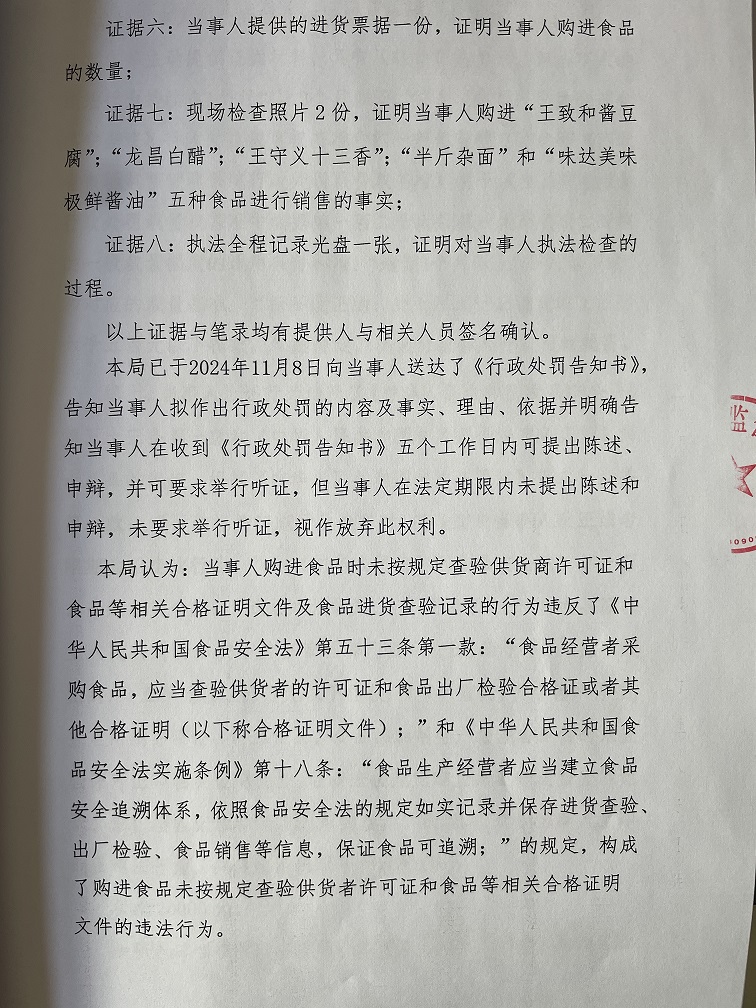 证据六：当事人提供的进货票据一份，证明当事人购进食品
的数量；
证据七：现场检查照片2份，证明当事人购进“王致和酱豆
腐”；“龙昌白醋”；“王守义十三香”；“半斤杂面”和“味达美味
极鲜酱油”五种食品进行销售的事实；
证据八：执法全程记录光盘一张，证明对当事人执法检查的
过程。
以上证据与笔录均有提供人与相关人员签名确认。
本局已于2024年11月8日向当事人送达了《行政处罚告知书》，
告知当事人拟作出行政处罚的内容及事实、理由、依据并明确告
知当事人在收到《行政处罚告知书》五个工作日内可提出陈述、
申辩，并可要求举行听证，但当事人在法定期限内未提出陈述和
申辩，未要求举行听证，视作放弃此权利。
本局认为：当事人购进食品时未按规定查验供货商许可证和
食品等相关合格证明文件及食品进货查验记录的行为违反了《中
华人民共和国食品安全法》第五十三条第一款：“食品经营者采
购食品，应当查验供货者的许可证和食品出厂检验合格证或者其
他合格证明（以下称合格证明文件）；”和《中华人民共和国食
品安全法实施条例》第十八条：“食品生产经营者应当建立食品
安全追溯体系，依照食品安全法的规定如实记录并保存进货查验、
出厂检验、食品销售等信息，保证食品可追溯；”的规定，构成
了购进食品未按规定查验供货者许可证和食品等相关合格证明
文件的违法行为。
监